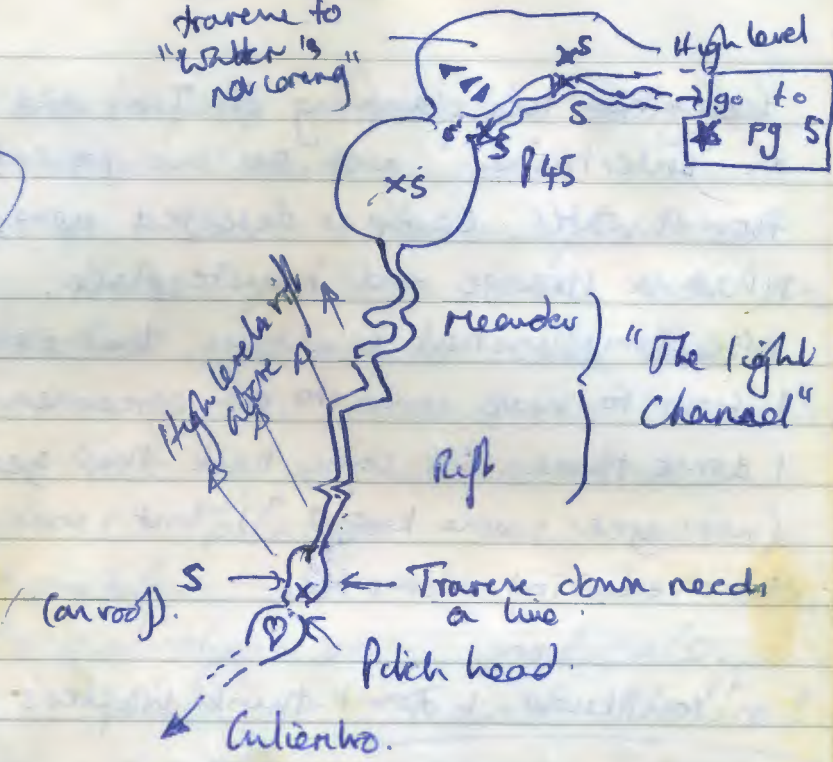 traverse to
"Winter is
not coming"
S
High level
go to
pg 5
S
S
S
P45
xs
High level rift
above
Meander
"The light
Channel"
Rift
S
(on roof).
Traverse down needs
a line.
Pitch head.
Culiembro.